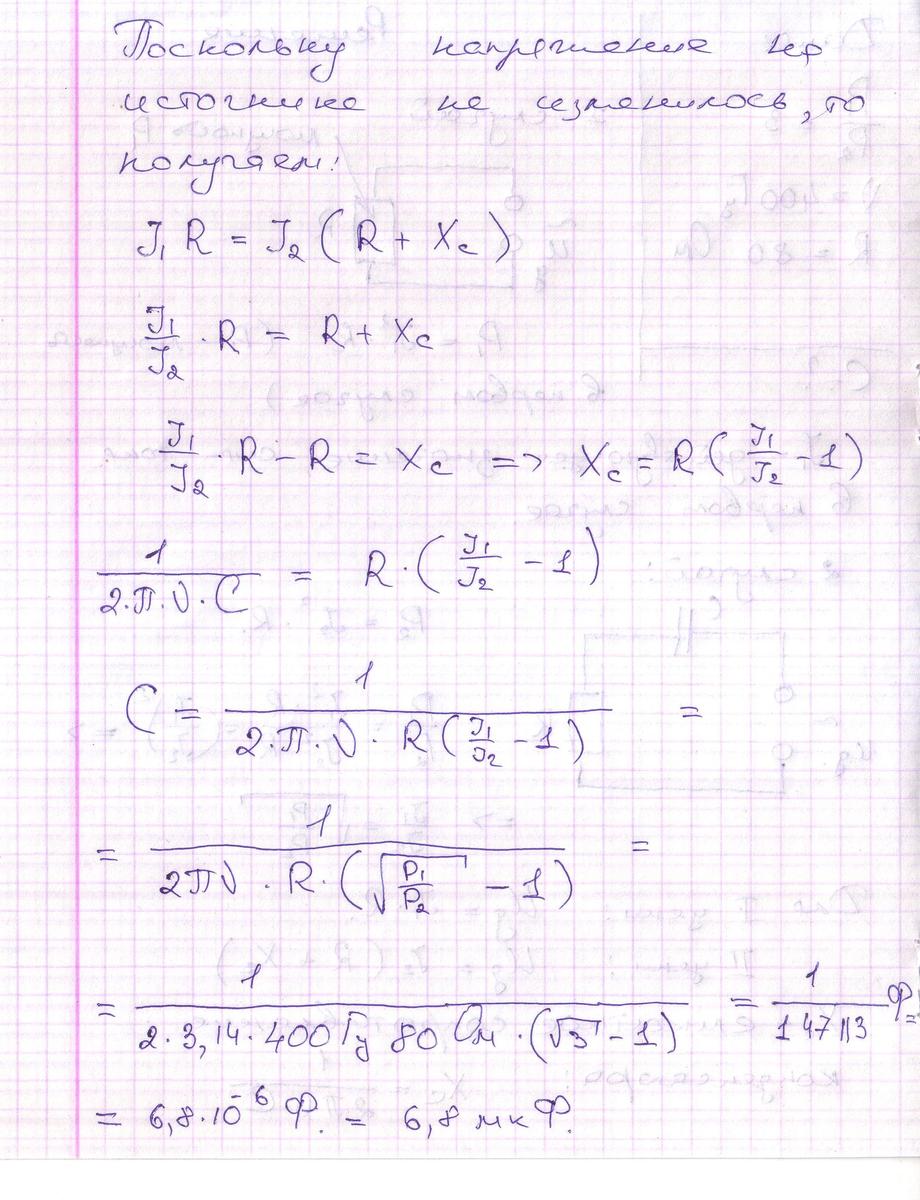 Поскольку напряжение на
источнике не изменилось, то
получаем:
J₁ R = J₂ ( R + Xc )
J₁/J₂ · R = R + Xc
J₁/J₂ · R − R = Xc => Xc = R ( J₁/J₂ − 1 )
1/(2·π·ν·C) = R · ( J₁/J₂ − 1 )
C = 1/(2·π·ν · R ( J₁/J₂ − 1 )) =
= 1/(2πν · R · ( √(P₁/P₂) − 1 )) =
= 1/(2·3,14·400 Гц 80 Ом · (√3 − 1)) = 1/147113 Ф =
= 6,8·10⁻⁶ Ф. = 6,8 мкФ.